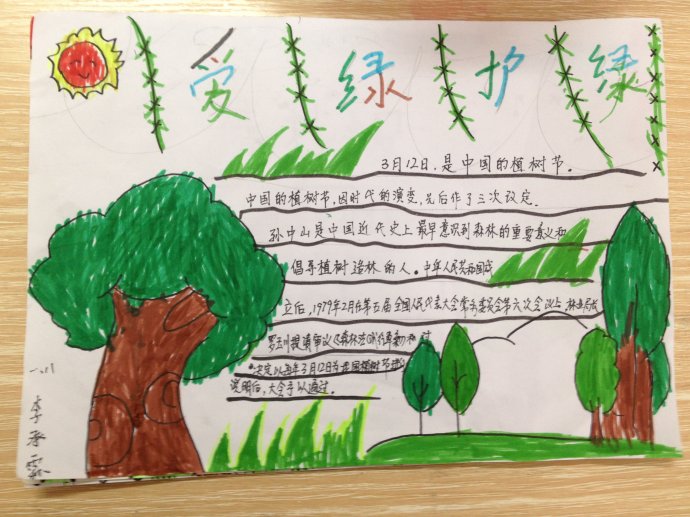 爱绿护绿
3月12日,是中国的植树节。
中国的植树节,因时代的演变,先后作了三次议定.
孙中山是中国近代史上最早意识到森林的重要意义和
倡导植树造林的人。中华人民共和国成
立后,1979年2月在第五届全国人民代表大会常务委会第六次会议上,林业部长
罗玉川提请审议
决定以每年3月12日为我国植树节
说明后,大会予以通过。
一、八
李